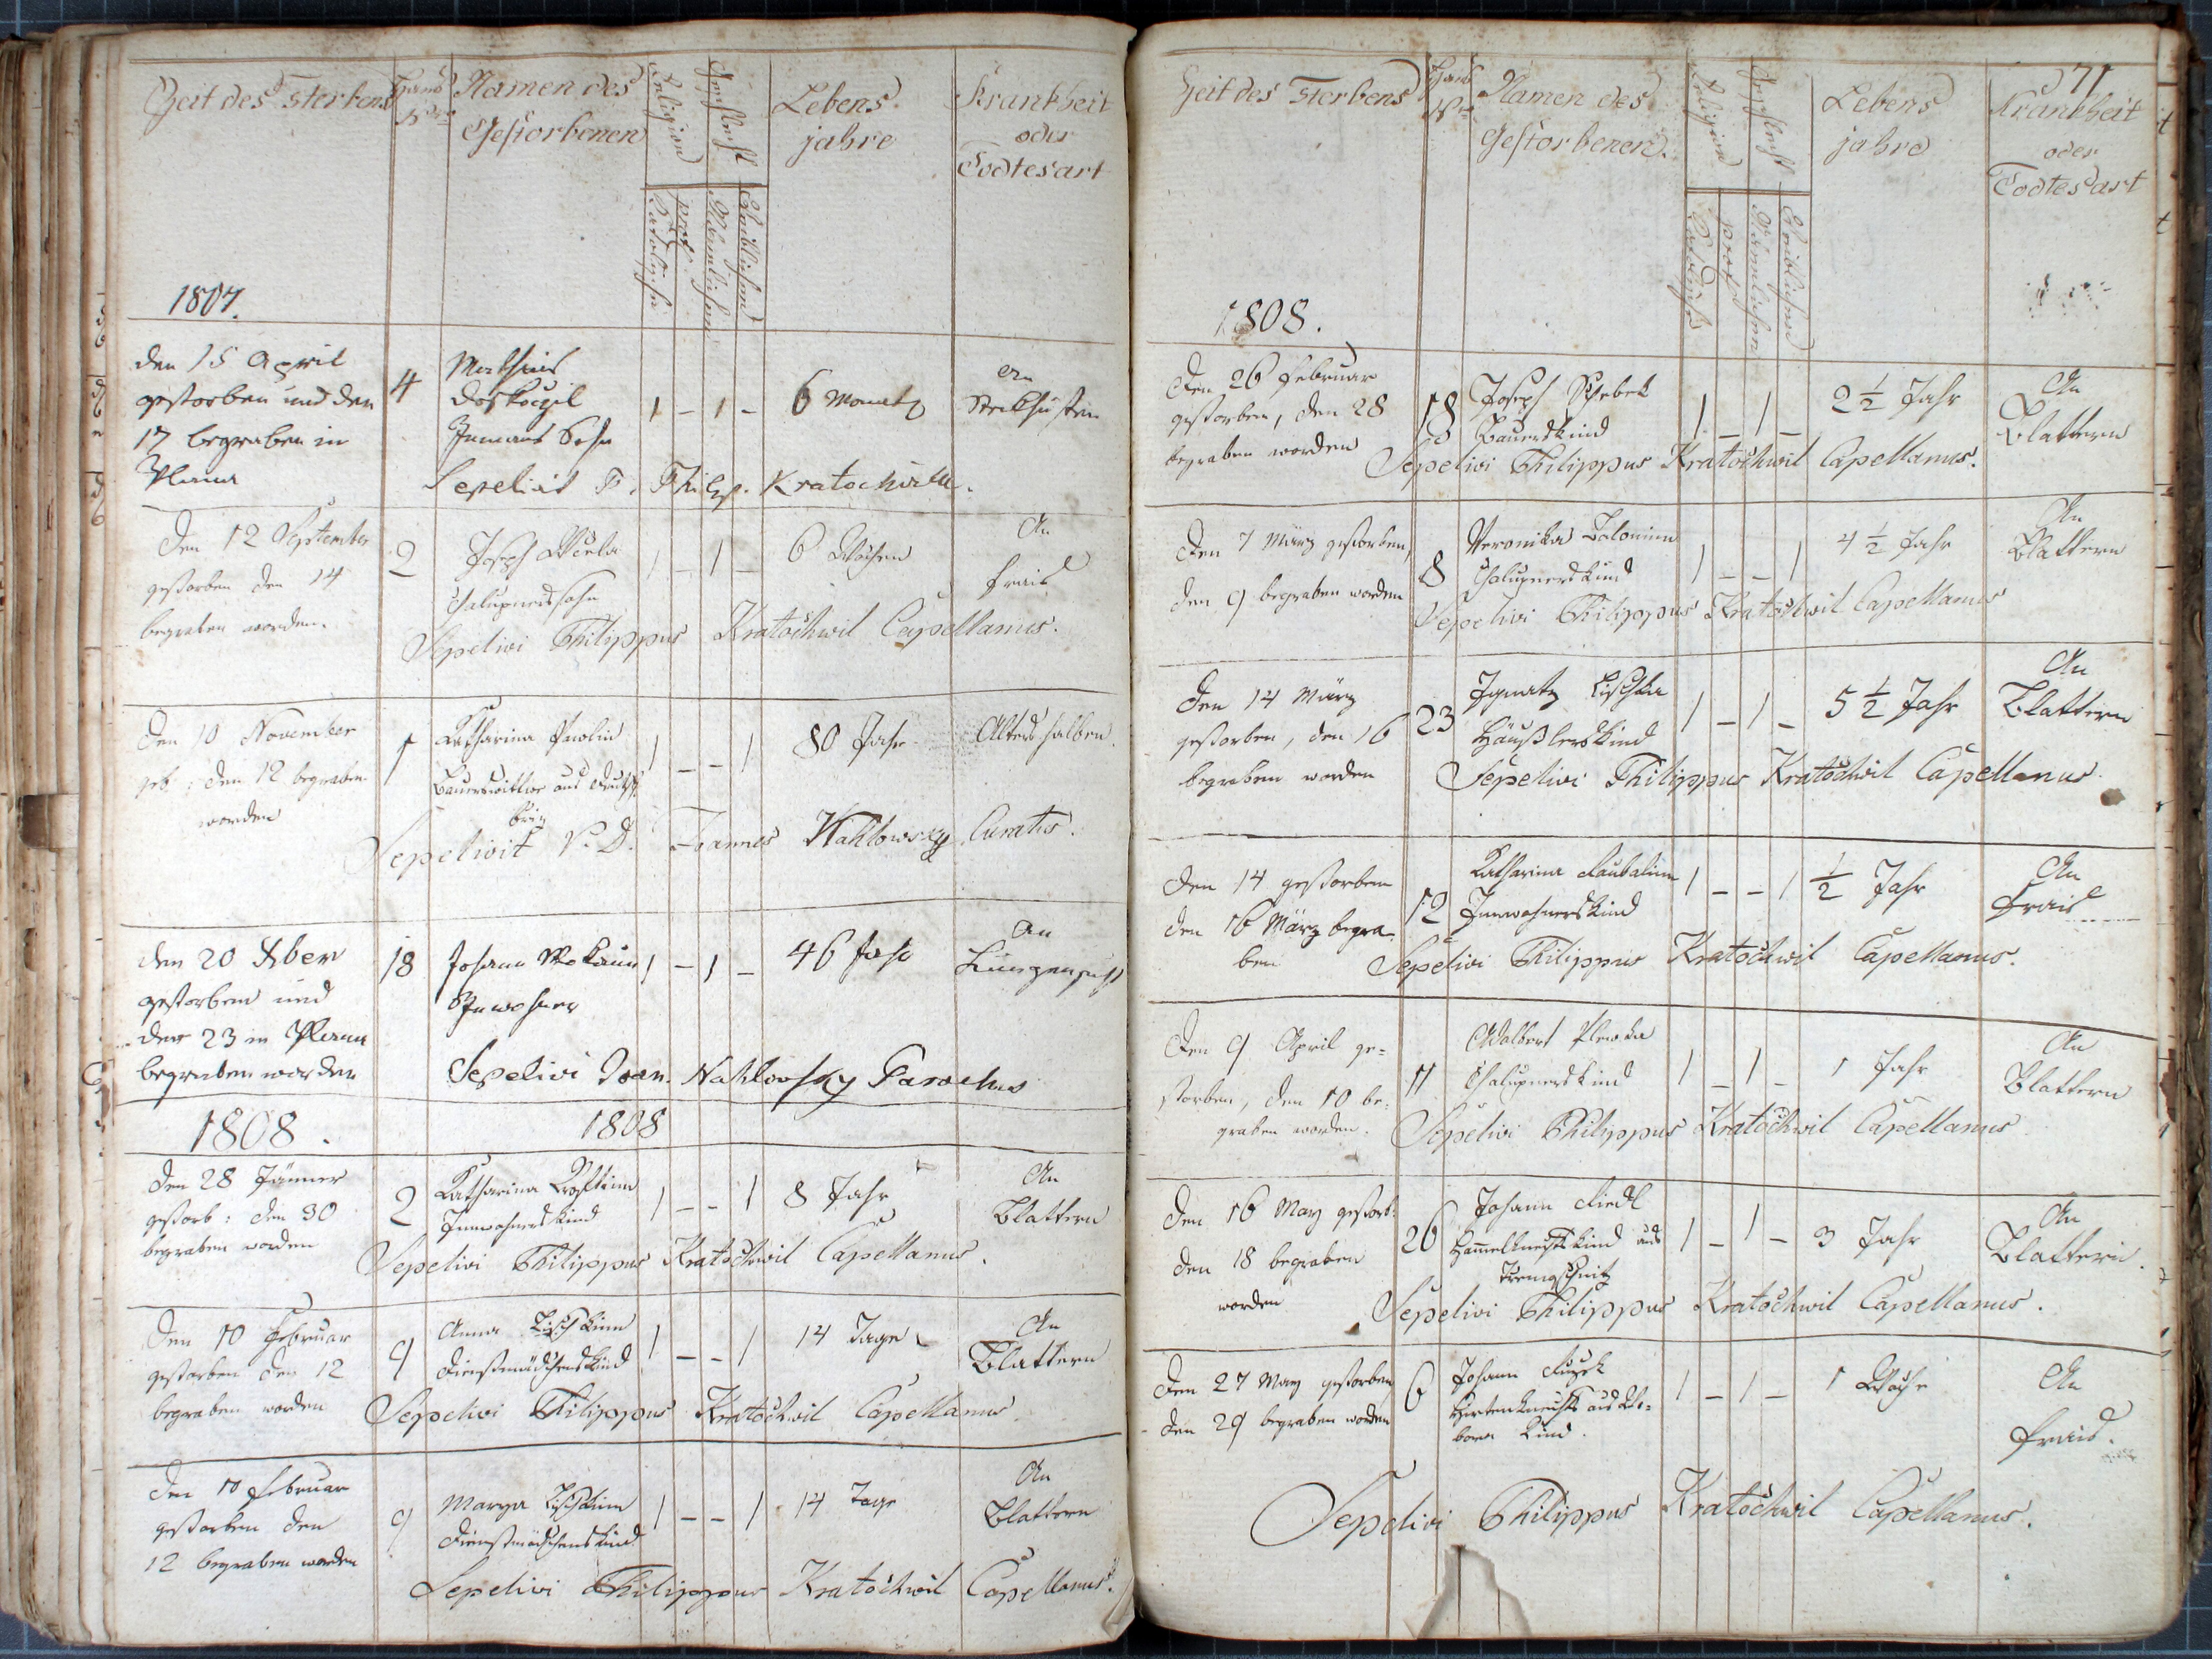 Zeit des Sterbens
Haus Nro
Namen des Gestorbenen
Religion
Katholisch
prot.
Geschlecht
Männlichen
Weiblichen
Lebens jahre
Krankheit oder Todtesart
1807.
den 15 April
gestorben und den
17 begraben in
Plana
4
Mathias
Doskoczil
Inmans Sohn
1 - 1 -
6 Monat
An
Steckhusten
Sepelivit P. Philip. Kratochwill.
Den 12 September
gestorben den 14
begraben worden.
2
Joseph
Chalupnerssohn
1 - 1 -
6 Wochen
An
Frais
Sepelivi Philippus Kratochwil Capellanus.
Den 10 November
geb: den 12 begraben
worden
1
Katharina Pawlin
Bauerswittwe aus Deutsch
1 - - 1
80 Jahr
Alters halben.
Sepelivit V. D. Joannes Nahlowsky Curatus.
den 20 Xber
gestorben und
den 23 in Plana
begraben worden
18
Johann
Inwohner
1 - 1 -
46 Jahr
An
Lungensucht
Sepelivi Joan. Nahlovsky Parochus
1808. 1808
Den 28 Jänner
gestorb: den 30
begraben worden
2
Katharina
Innwohnerskind
1 - - 1
8 Jahr
An
Blattern
Sepelivi Philippus Kratochwil Capellanus.
Den 10 Februar
gestorben den 12
begraben worden
9
Anna Lischkin
Dienstmädchenskind
1 - - 1
14 Tage
An
Blattern
Sepelivi Philippus Kratochwil Capellanus.
Den 10 Februar
gestorben den
12 begraben worden
9
Marya Lischkin
Dienstmädchenskind
1 - - 1
14 Tage
An
Blattern
Sepelivi Philippus Kratochwil Capellanus.
71
Zeit des Sterbens
Haus Nro
Namen des Gestorbenen.
Religion
Katholisch
prot.
Geschlecht
Männlichen
Weiblichen
Lebens jahre
Krankheit oder Todtesart
1808.
Den 26 Februar
gestorben, den 28
begraben worden
18
Joseph Schebek
Bauerskind
1 - 1 -
2 1/2 Jahr
An
Blattern
Sepelivi Philippus Kratochwil Capellanus.
Den 7 März gestorben,
den 9 begraben worden
8
Veronika
Chalupnerskind
1 - - 1
4 1/2 Jahr
An
Blattern
Sepelivi Philippus Kratochwil Capellanus
Den 14 März
gestorben, den 16
begraben worden
23
Ignatz Lischka
Häußlerskind
1 - 1 -
5 1/2 Jahr
An
Blattern
Sepelivi Philippus Kratochwil Capellanus.
Den 14 gestorben
den 16 März begra-
ben
12
Katharina
Innwohnerskind
1 - - 1
1/2 Jahr
An
Frais
Sepelivi Philippus Kratochwil Capellanus.
Den 9 April ge=
storben, den 10 be=
graben worden.
11
Adalbert Plewka
Chalupnerskind
1 - 1 -
1 Jahr
An
Blattern
Sepelivi Philippus Kratochwil Capellanus
Den 16 May gestorb:
den 18 begraben
worden
26
Johann Riedl
Hammelknechtskind aus
1 - 1 -
3 Jahr
An
Blattern.
Sepelivi Philippus Kratochwil Capellanus.
Den 27 May gestorben
den 29 begraben worden
6
Johann
Hirtenknechts aus
Kind.
1 - 1 -
1 Woche
An
Frais.
Sepelivi Philippus Kratochwil Capellanus.